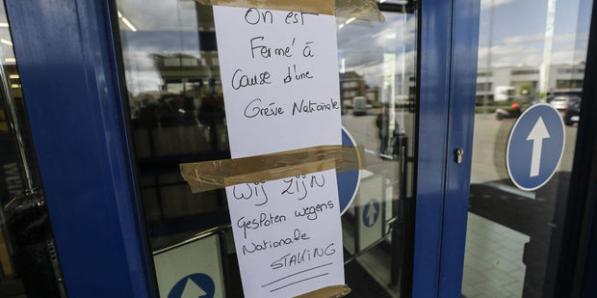 On est
Fermé à
Cause d'une
Grève Nationale
Wij Zijn
Gesploten wegens
Nationale
STAKING